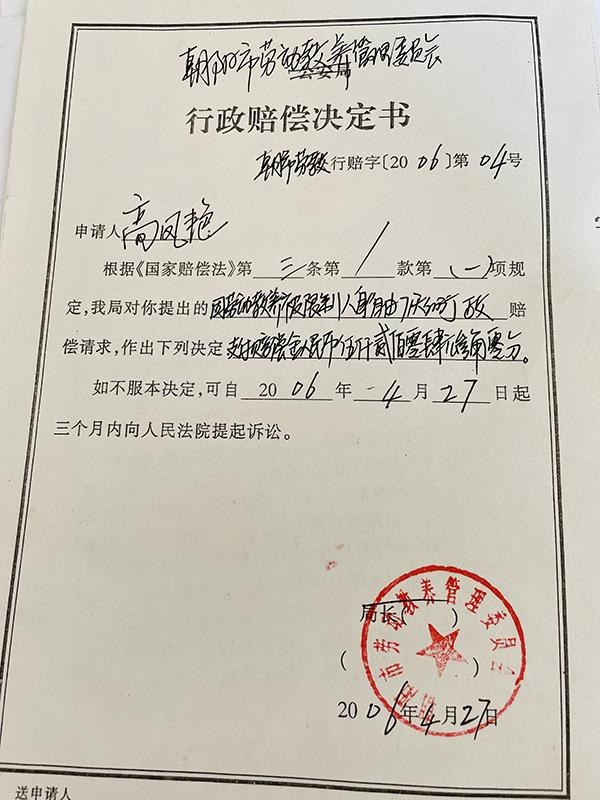 朝阳市劳动教养管理委员会
公安局
行政赔偿决定书
朝阳劳教行赔字〔2006〕第04号
申请人 高凤艳
根据《国家赔偿法》第三条第1款第(一)项规
定,我局对你提出的因劳动教养被限制人身自由 赔
偿请求,作出下列决定支付赔偿金人民币伍仟贰佰零肆元 角零分。
如不服本决定,可自2006年4月27日起
三个月内向人民法院提起诉讼。
局长( )
( )
市劳动教养管理委员会
2006年4月27日
送申请人